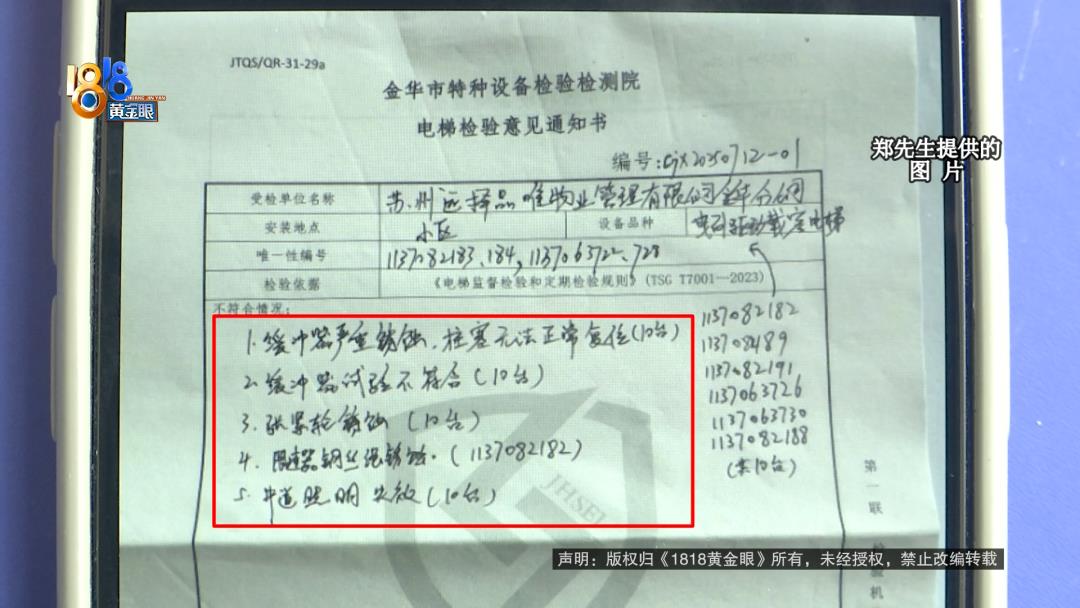 JTQS/QR-31-29a
1818
HUANG JIN YAN
黄金眼
金华市特种设备检验检测院
电梯检验意见通知书
郑先生提供的
图 片
编号:cjx20250712-01
受检单位名称 苏州远择品唯物业管理有限公司金华分公司
安装地点 小区 设备品种 曳引驱动载客电梯
唯一性编号 1137082183、184,1137063722、728
检验依据 《电梯监督检验和定期检验规则》(TSG T7001—2023)
不符合情况:
1. 缓冲器严重锈蚀,柱塞无法正常复位(10台)
2. 缓冲器试验不符合(10台)
3. 张紧轮锈蚀(10台)
4. 限速器钢丝绳锈蚀。(1137082182)
5. 井道照明失效(10台)
1137082182
113708489
1137082191
1137063726
1137063730
1137082188
(共10台)
JHSEI
第一联
检验机
声明:版权归《1818黄金眼》所有,未经授权,禁止改编转载